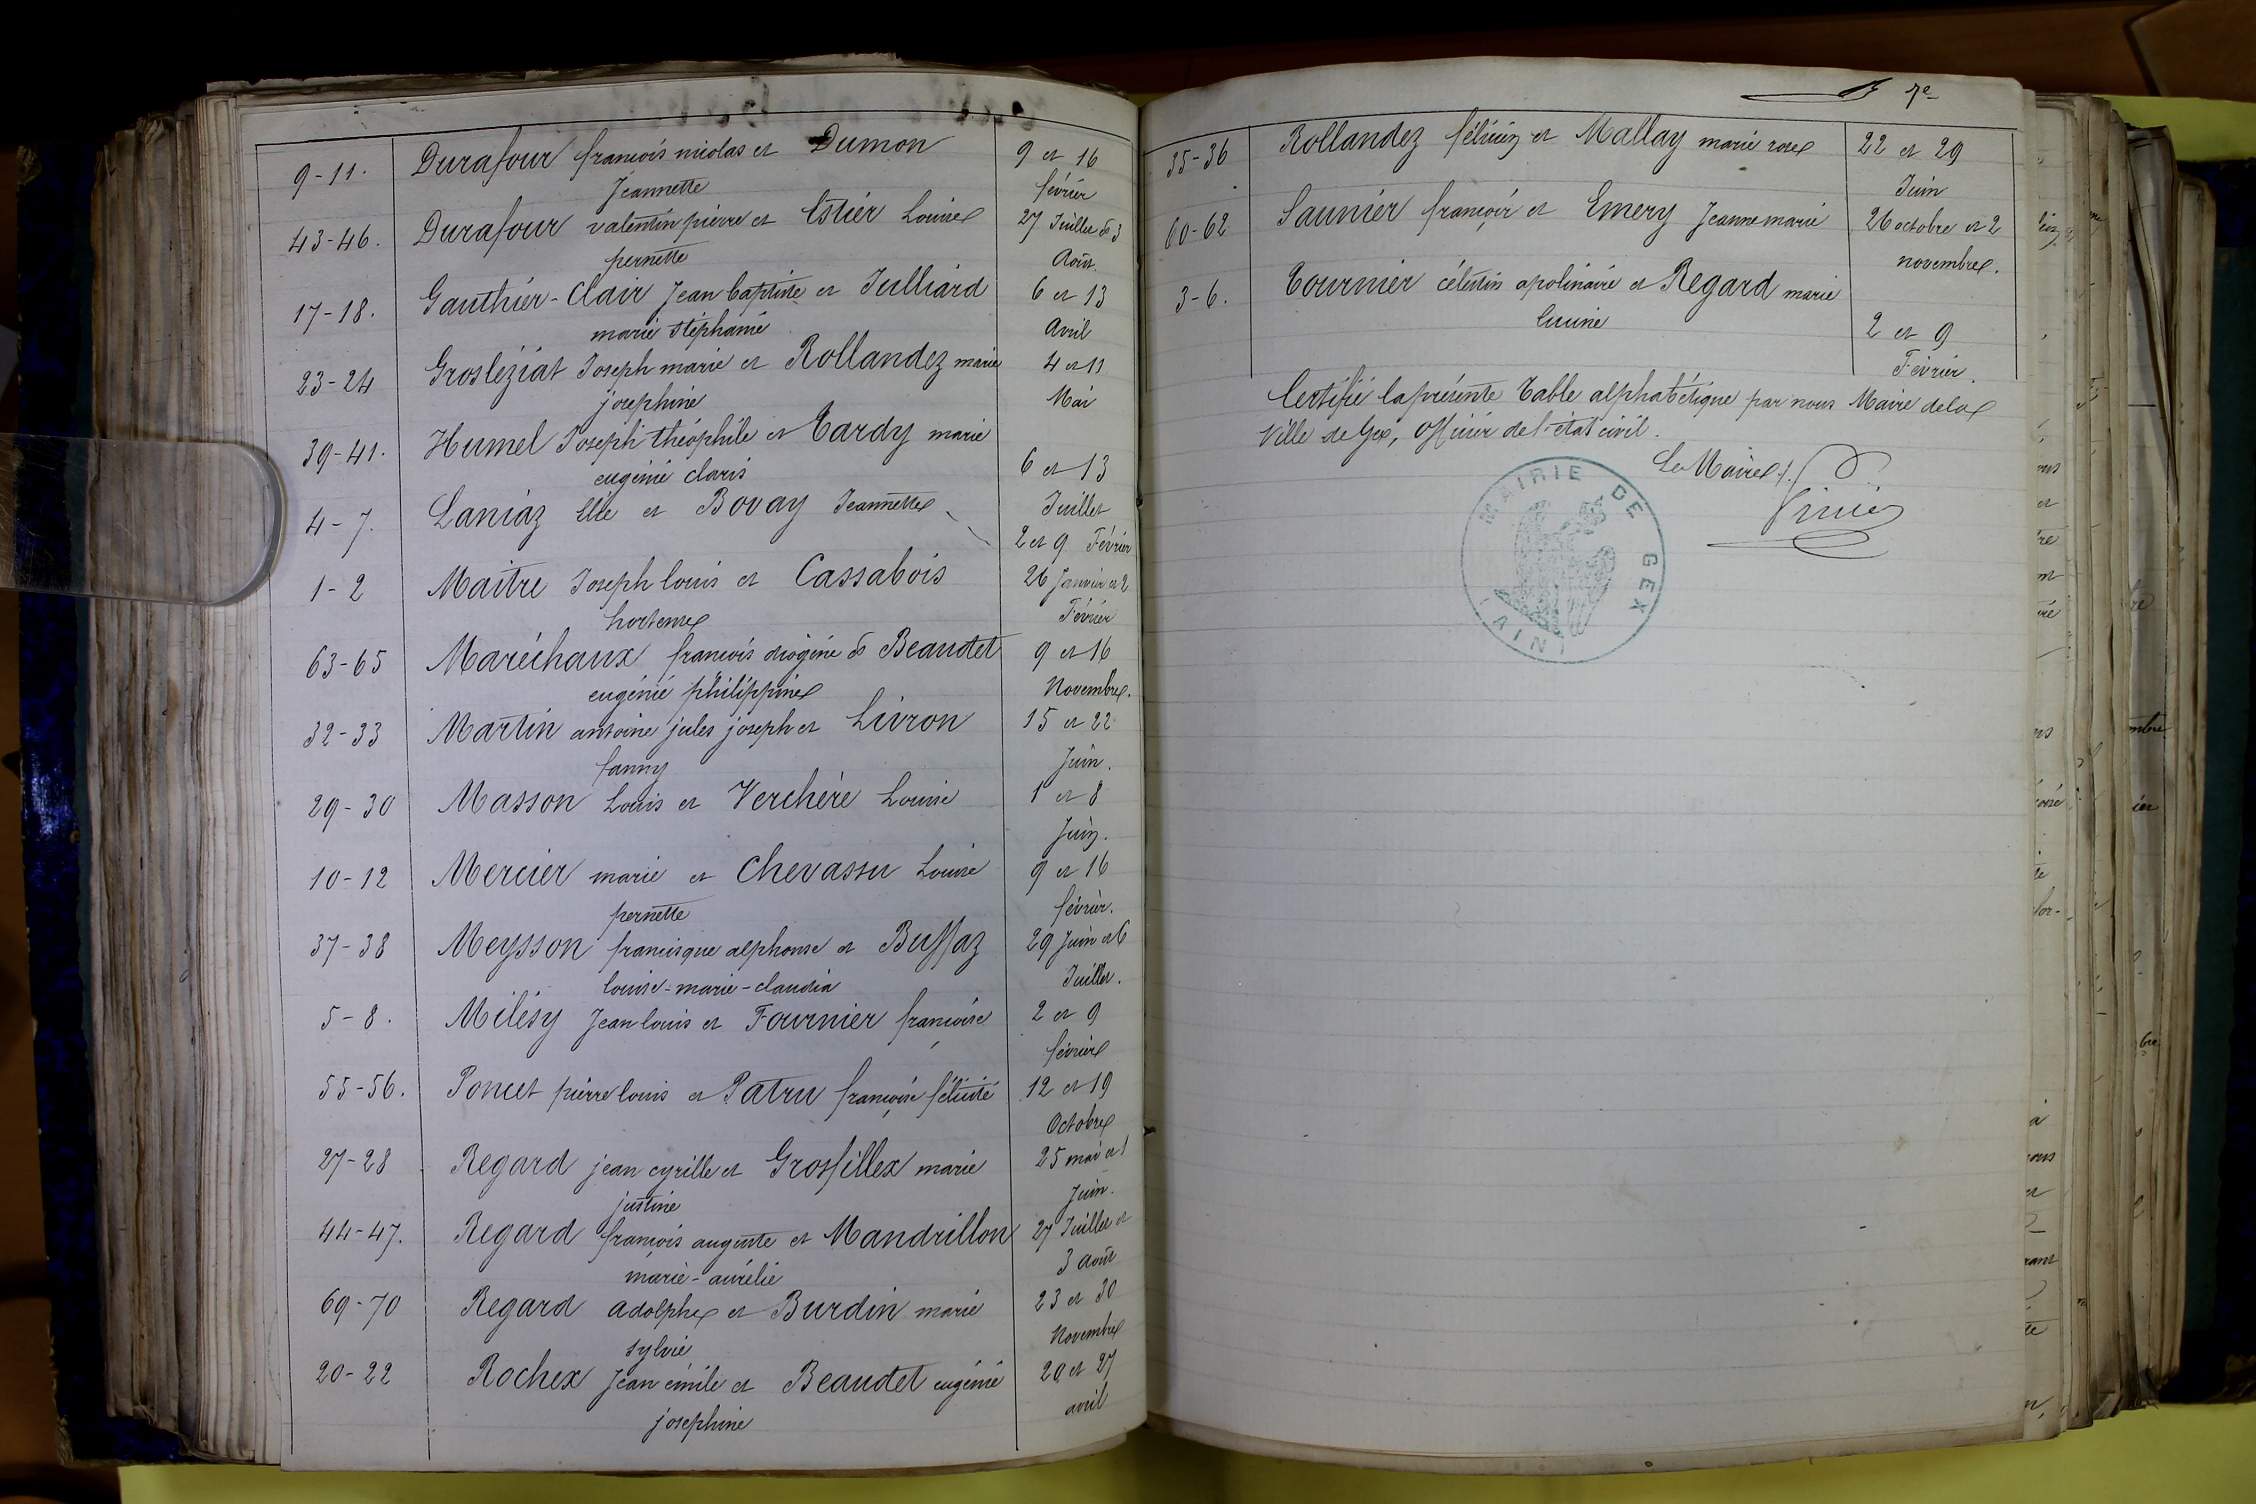 9-11. Durafour francois nicolas et Dumon 9 et 16
Jeannette février
43-46. Durafour valentin pierre et Estier Louise 27 Juillet & 3
pernette Août.
17-18. Gauthier-Clair Jean baptiste et Julliard 6 et 13
marie stéphanie Avril
23-24 Grosléziat Joseph marie et Rollandez marie 4 et 11
josephine Mai
39-41. Humel Joseph théophile et Tardy marie
eugénie claris 6 et 13
4-7. Laniaz Elie et Bovay Jeannette Juillet
2 et 9 Février
1-2 Maitre Joseph louis et Cassabois 26 Janvier et 2
hortense Février
63-65 Maréchaux francois diogéne & Beaudet 9 et 16
eugénie philippine Novembre.
32-33 Martin antoine jules joseph et Livron 15 et 22
fanny Juin.
29-30 Masson Louis et Verchére Louise 1 et 8
Juin.
10-12 Mercier marie et Chevassu Louise 9 et 16
pernette février.
37-38 Meysson francisque alphonse et Buffaz 29 Juin et 6
louise-marie-claudia Juillet.
5-8. Milésy Jean louis et Fournier francoise 2 et 9
février
55-56. Poncet pierre louis et Patru françoise félicité 12 et 19
Octobre
27-28 Regard jean cyrille et Grosfillex marie 25 mai et 1
justine Juin.
44-47. Regard françois auguste et Mandrillon 27 Juillet et
marie-aurélie 3 août
69-70 Regard adolphe et Burdin marie 23 et 30
sylvie Novembre
20-22 Rochex Jean émile et Beaudet eugénie 20 et 27
josephine avril
7e
35-36 Rollandez félicien et Mallay marie rose 22 et 29
Juin
60-62 Saunier françois et Emery Jeanne marie 26 octobre et 2
novembre.
3-6. Tournier célestin apolinaire et Regard marie
2 et 9
Février.
Certifié la présente Table alphabétique par nous Maire de la
Ville de Gex, Officier de l'état civil.
Le Maire
MAIRIE DE GEX
(AIN)